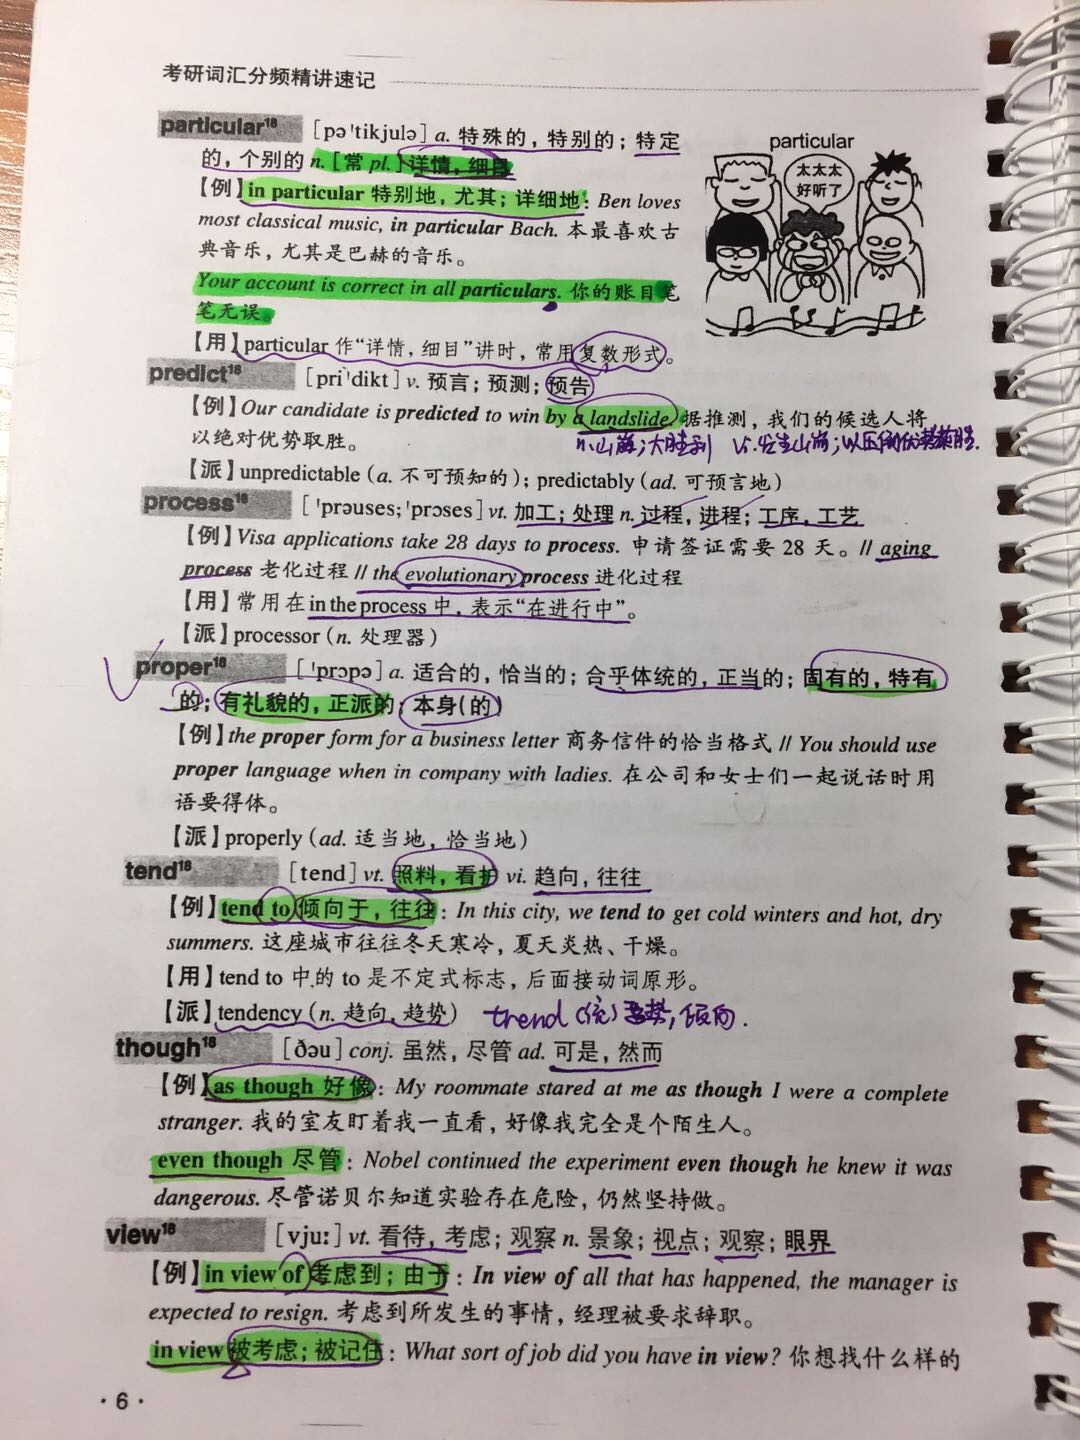 考研词汇分频精讲速记
particular¹⁸ [pə'tikjulə] a. 特殊的，特别的；特定
的，个别的 n. [常 pl.] 详情，细目
【例】in particular 特别地，尤其；详细地：Ben loves
most classical music, in particular Bach. 本最喜欢古
典音乐，尤其是巴赫的音乐。
Your account is correct in all particulars. 你的账目笔
笔无误。
【用】particular 作“详情，细目”讲时，常用复数形式。
particular
太太太
好听了
predict¹⁸ [pri'dikt] v. 预言；预测；预告
【例】Our candidate is predicted to win by a landslide. 据推测，我们的候选人将
以绝对优势取胜。
n.山崩；大胜利 vi.发生山崩；以压倒优势获胜.
【派】unpredictable (a. 不可预知的)；predictably (ad. 可预言地)
process¹⁸ ['prəuses; 'prɔses] vt. 加工；处理 n. 过程，进程；工序，工艺
【例】Visa applications take 28 days to process. 申请签证需要 28 天。// aging
process 老化过程 // the evolutionary process 进化过程
【用】常用在 in the process 中，表示“在进行中”。
【派】processor (n. 处理器)
proper¹⁸ ['prɔpə] a. 适合的，恰当的；合乎体统的，正当的；固有的，特有
的；有礼貌的，正派的；本身(的)
【例】the proper form for a business letter 商务信件的恰当格式 // You should use
proper language when in company with ladies. 在公司和女士们一起说话时用
语要得体。
【派】properly (ad. 适当地，恰当地)
tend¹⁸ [tend] vt. 照料，看护 vi. 趋向，往往
【例】tend to 倾向于，往往：In this city, we tend to get cold winters and hot, dry
summers. 这座城市往往冬天寒冷，夏天炎热、干燥。
【用】tend to 中的 to 是不定式标志，后面接动词原形。
【派】tendency (n. 趋向，趋势) trend 趋势，倾向.
though¹⁸ [ðəu] conj. 虽然，尽管 ad. 可是，然而
【例】as though 好像：My roommate stared at me as though I were a complete
stranger. 我的室友盯着我一直看，好像我完全是个陌生人。
even though 尽管：Nobel continued the experiment even though he knew it was
dangerous. 尽管诺贝尔知道实验存在危险，仍然坚持做。
view¹⁸ [vju:] vt. 看待，考虑；观察 n. 景象；视点；观察；眼界
【例】in view of 考虑到；由于：In view of all that has happened, the manager is
expected to resign. 考虑到所发生的事情，经理被要求辞职。
in view 被考虑；被记住：What sort of job did you have in view? 你想找什么样的
· 6 ·